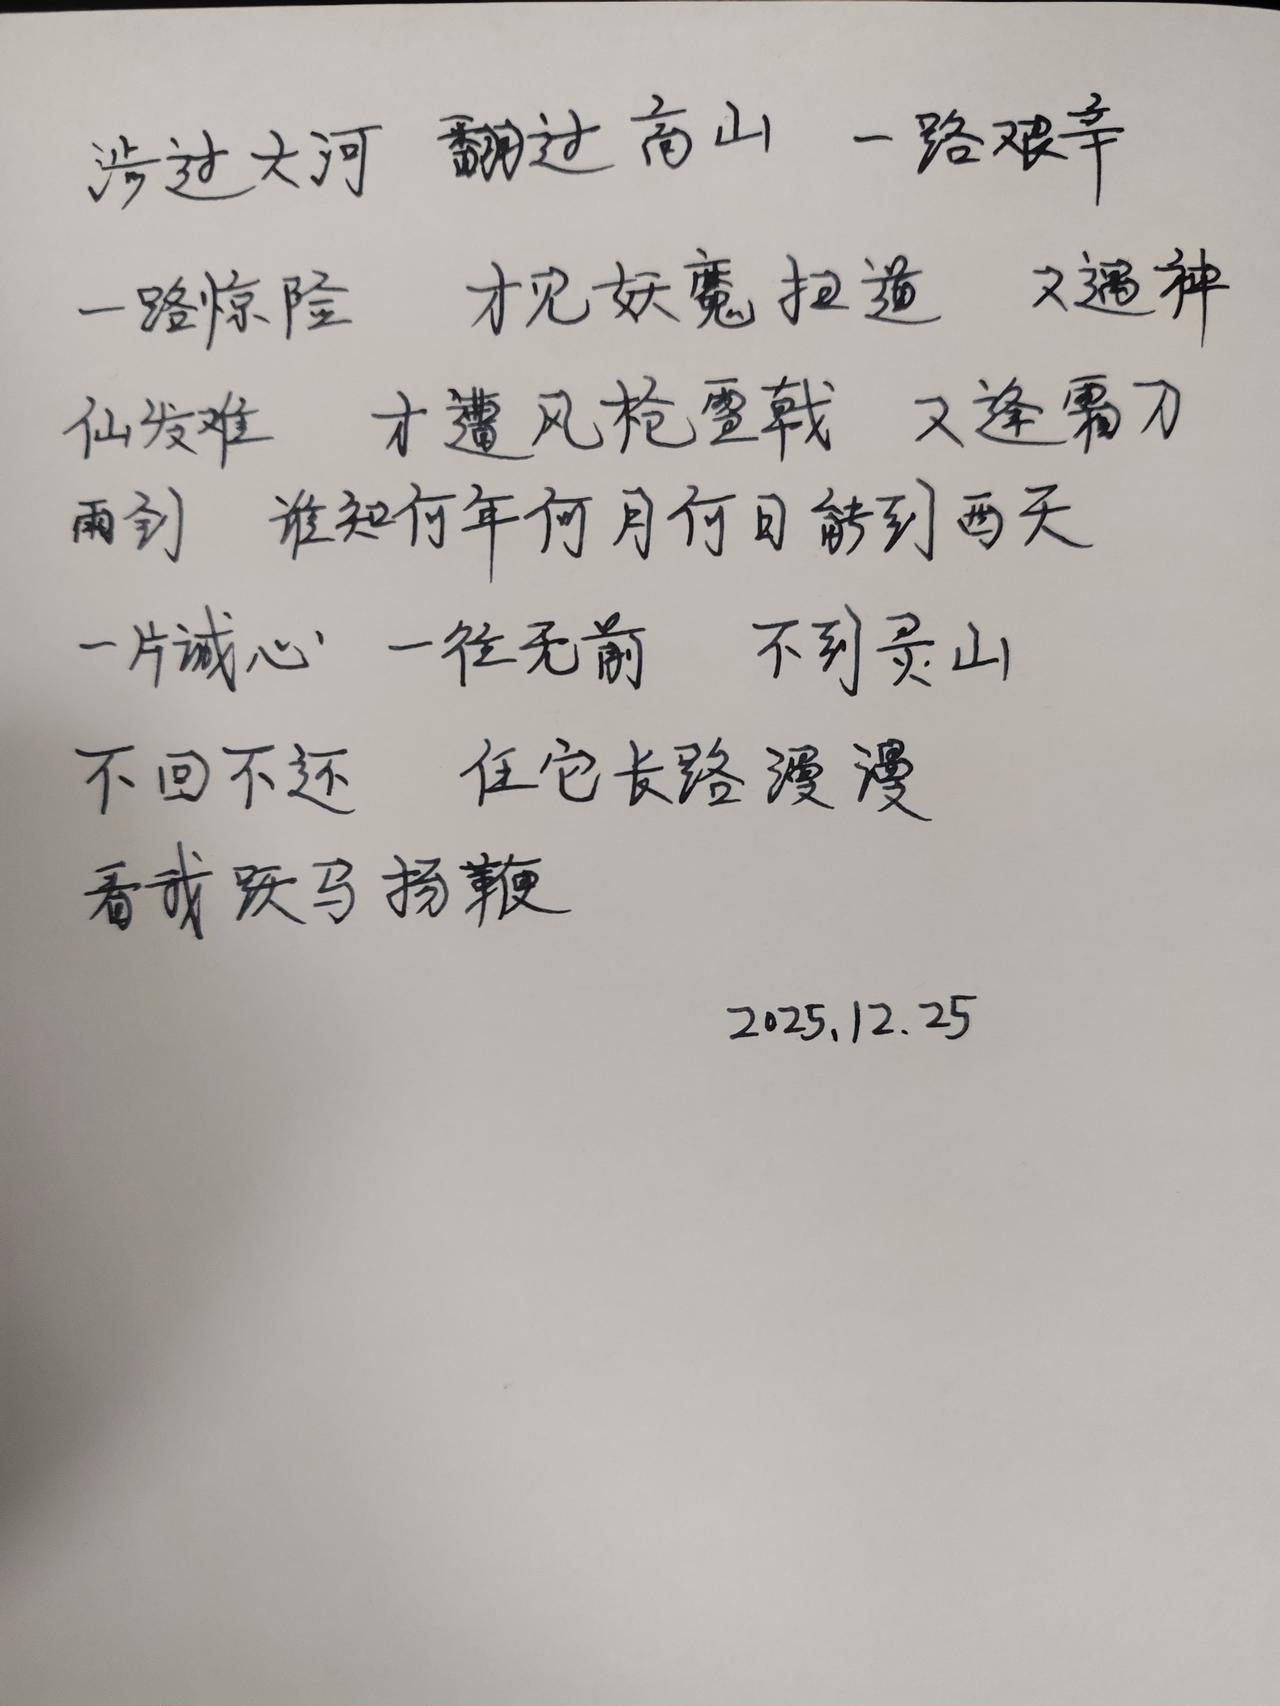 涉过大河 翻过高山 一路艰辛
一路惊险 才见妖魔扭道 又遇神
仙发难 才遭风枪雪戟 又逢霜刀
雨剑 谁知何年何月何日能到西天
一片诚心 一往无前 不到灵山
不回不还 任它长路漫漫
看我跃马扬鞭
2025.12.25